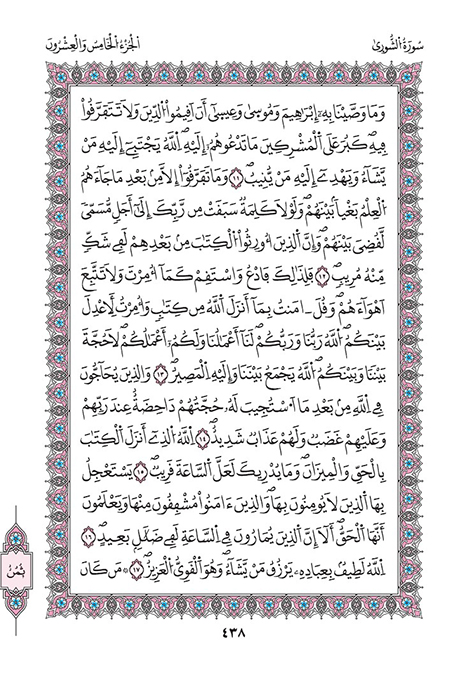 سُورَةُ الشُّورىٰ
الجُزْءُ الخَامِسُ وَالْعِشْرُونَ
وَمَا وَصَّيْنَا بِهِۦٓ إِبْرَٰهِيمَ وَمُوسىٰ وَعِيسىٰٓ أَنَ اَقِيمُواْ الدِّينَ وَلَا تَتَفَرَّقُواْ
فِيهِۖ كَبُرَ عَلَى اَلْمُشْرِكِينَ مَا تَدْعُوهُمُۥٓ إِلَيْهِۖ اِللَّهُ يَجْتَبِےٓ إِلَيْهِ مَنْ
يَّشَآءُ وَيَهْدِےٓ إِلَيْهِ مَنْ يُّنِيبُۖ ١١ وَمَا تَفَرَّقُوٓاْ إِلَّا مِنۢ بَعْدِ مَا جَآءَهُمُ
اُلْعِلْمُ بَغْياَۢ بَيْنَهُمْۖ وَلَوْلَا كَلِمَةٞ سَبَقَتْ مِن رَّبِّكَ إِلَىٰٓ أَجَلٖ مُّسَمّىٗ
لَّقُضِيَ بَيْنَهُمْۖ وَإِنَّ اَلذِينَ أُورِثُواْ اُلْكِتَٰبَ مِنۢ بَعْدِهِمْ لَفِے شَكّٖ
مِّنْهُ مُرِيبٖۖ ١٢ فَلِذَٰلِكَ فَادْعُۖ وَاسْتَقِمْ كَمَآ أُمِرْتَۖ وَلَا تَتَّبِعَ
اَهْوَآءَهُمْۖ وَقُلَ اٰمَنتُ بِمَآ أَنزَلَ اَللَّهُ مِن كِتَٰبٖۖ وَأُمِرْتُ لِأَعْدِلَ
بَيْنَكُمُۖ اُللَّهُ رَبُّنَا وَرَبُّكُمْۖ لَنَآ أَعْمَٰلُنَا وَلَكُمُۥٓ أَعْمَٰلُكُمْۖ لَا حُجَّةَ
بَيْنَنَا وَبَيْنَكُمُۖ اُللَّهُ يَجْمَعُ بَيْنَنَا وَإِلَيْهِ اِلْمَصِيرُۖ ١٣ وَالذِينَ يُحَآجُّونَ
فِے اِللَّهِ مِنۢ بَعْدِ مَا اَسْتُجِيبَ لَهُۥ حُجَّتُهُمْ دَاحِضَةٌ عِندَ رَبِّهِمْ
وَعَلَيْهِمْ غَضَبٞ وَلَهُمْ عَذَابٞ شَدِيدٌۖ ١٤ اِللَّهُ اُلذِےٓ أَنزَلَ اَلْكِتَٰبَ
بِالْحَقِّ وَالْمِيزَانَۖ وَمَا يُدْرِيكَ لَعَلَّ اَلسَّاعَةَ قَرِيبٞۖ ١٥ يَسْتَعْجِلُ
بِهَا اَلذِينَ لَا يُومِنُونَ بِهَاۖ وَالذِينَ ءَامَنُواْ مُشْفِقُونَ مِنْهَا وَيَعْلَمُونَ
أَنَّهَا اَلْحَقُّۖ أَلَآ إِنَّ اَلذِينَ يُمَارُونَ فِے اِلسَّاعَةِ لَفِے ضَلَٰلِۢ بَعِيدٍۖ ١٦
اِللَّهُ لَطِيفُۢ بِعِبَادِهِۦ يَرْزُقُ مَنْ يَّشَآءُۖ وَهُوَ اَلْقَوِيُّ اُلْعَزِيزُۖ ١٧ مَن كَانَ
ثُمُنُ
٤٣٨